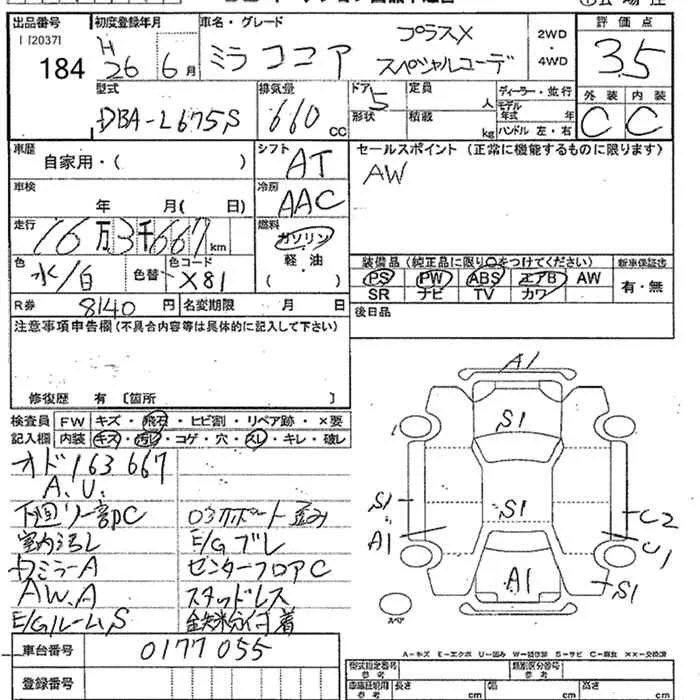 出品番号
1 [2037]
184
初度登録年月
H
26 6 月
車名・グレード
ミラココア プラスX
スペシャルコーデ
2WD
・
4WD
評価点
3.5
外装 内装
C C
型式
DBA-L675S
排気量
660 CC
ドア 5
形状
定員 人
積載 kg
ディーラー・並行
モデル年式 年
ハンドル 左・右
車歴
自家用・( )
シフト
AT
車検
年 月( 日)
冷房
AAC
走行
16万3千667 km
燃料
ガソリン
軽・油
( )
色
水/白
色替
色コード
X81
R券 8140 円
名変期限 月 日
セールスポイント (正常に機能するものに限ります)
AW
装備品 (純正品に限り○をつけてください)
PS PW ABS エアB AW
SR ナビ TV カワ
新車保証書
有・無
後日品
注意事項申告欄(不具合内容等は具体的に記入して下さい)
修復歴 有 [箇所 ]
検査員
記入欄
FW キズ・飛石・ヒビ割・リペア跡・×要
内装 キズ・汚レ・コゲ・穴・スレ・キレ・破レ
オド163667
A.U.
下回リ一部PC
室内汚レ
E/Gブレ
ミラーA
センターフロアC
AW.A
スタッドレス
E/GルームS
鉄粉付着
車台番号 0177055
登録番号
A1
S1
S1
S1
A1
A1
C2
C1
S1
スペア
A=キズ E=エクボ U=凹み W=補修跡 S=サビ C=腐食 ××=交換済
型式指定番号
参考
類別区分番号
参考
車庫証明用
参考
長さ cm
幅 cm
高さ cm